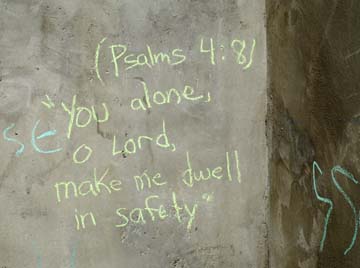 (Psalms 4:8)
"You alone,
SE
O Lord,
make me dwell
in safety"